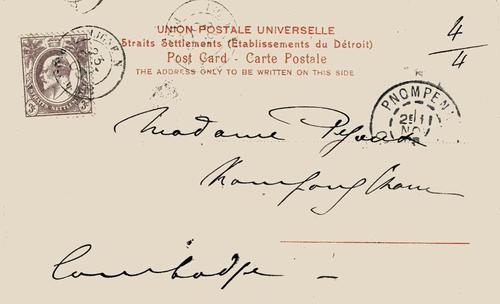 UNION POSTALE UNIVERSELLE
Straits Settlements (Etablissements du Détroit)
Post Card - Carte Postale
THE ADDRESS ONLY TO BE WRITTEN ON THIS SIDE
4/4
PNOMPENH
NOV
Madame
Kompong Cham
Cambodge -